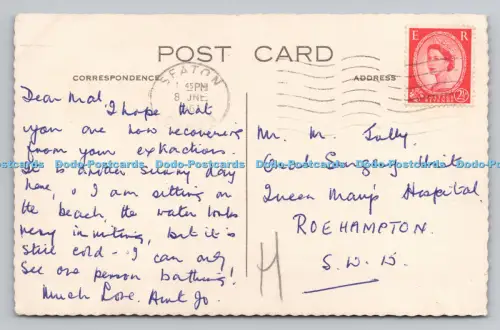 POST CARD
CORRESPONDENCE
ADDRESS
SEATON
PM
8 JNE
E R
2½
Dear Mal,
I hope that
you are now recovering
from your extractions.
It is another sunny day
here, & I am sitting on
the beach, the water looks
very inviting, but it is
still cold - I can only
see one person bathing!
Much Love. Aunt Jo.
Mr. M. Jolly
Surgery Unit
Queen Mary's Hospital
ROEHAMPTON.
S.W.15.
H
Dodo-Postcards Dodo-Postcards Dodo-Postcards Dodo-Postcards Dodo-Postcards